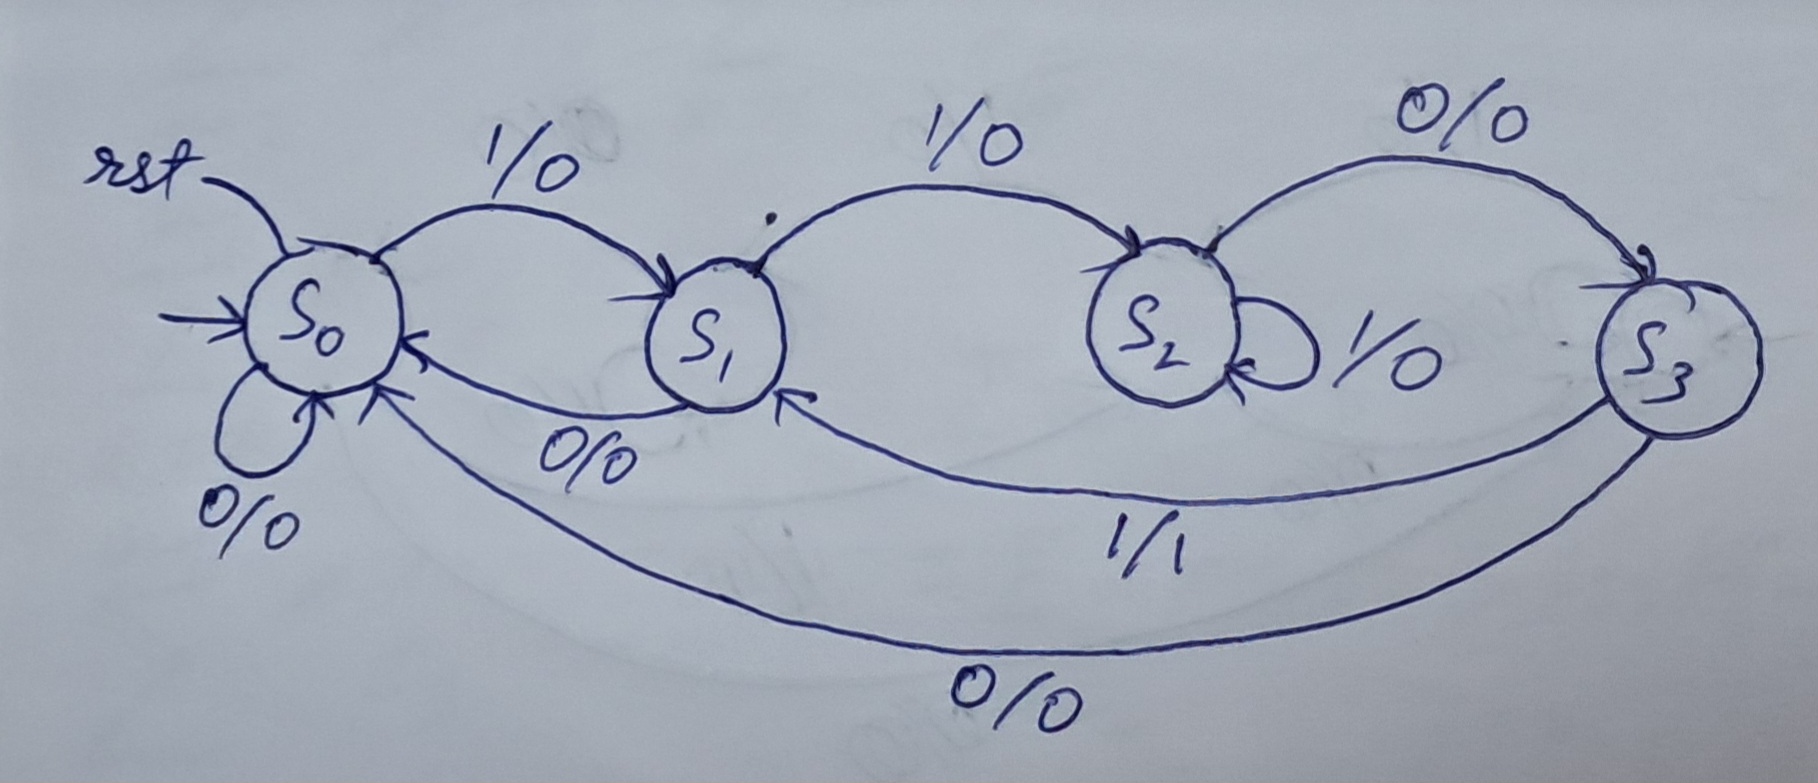 rst
1/0
1/0
0/0
S0
S1
S2
S3
1/0
0/0
0/0
1/1
0/0